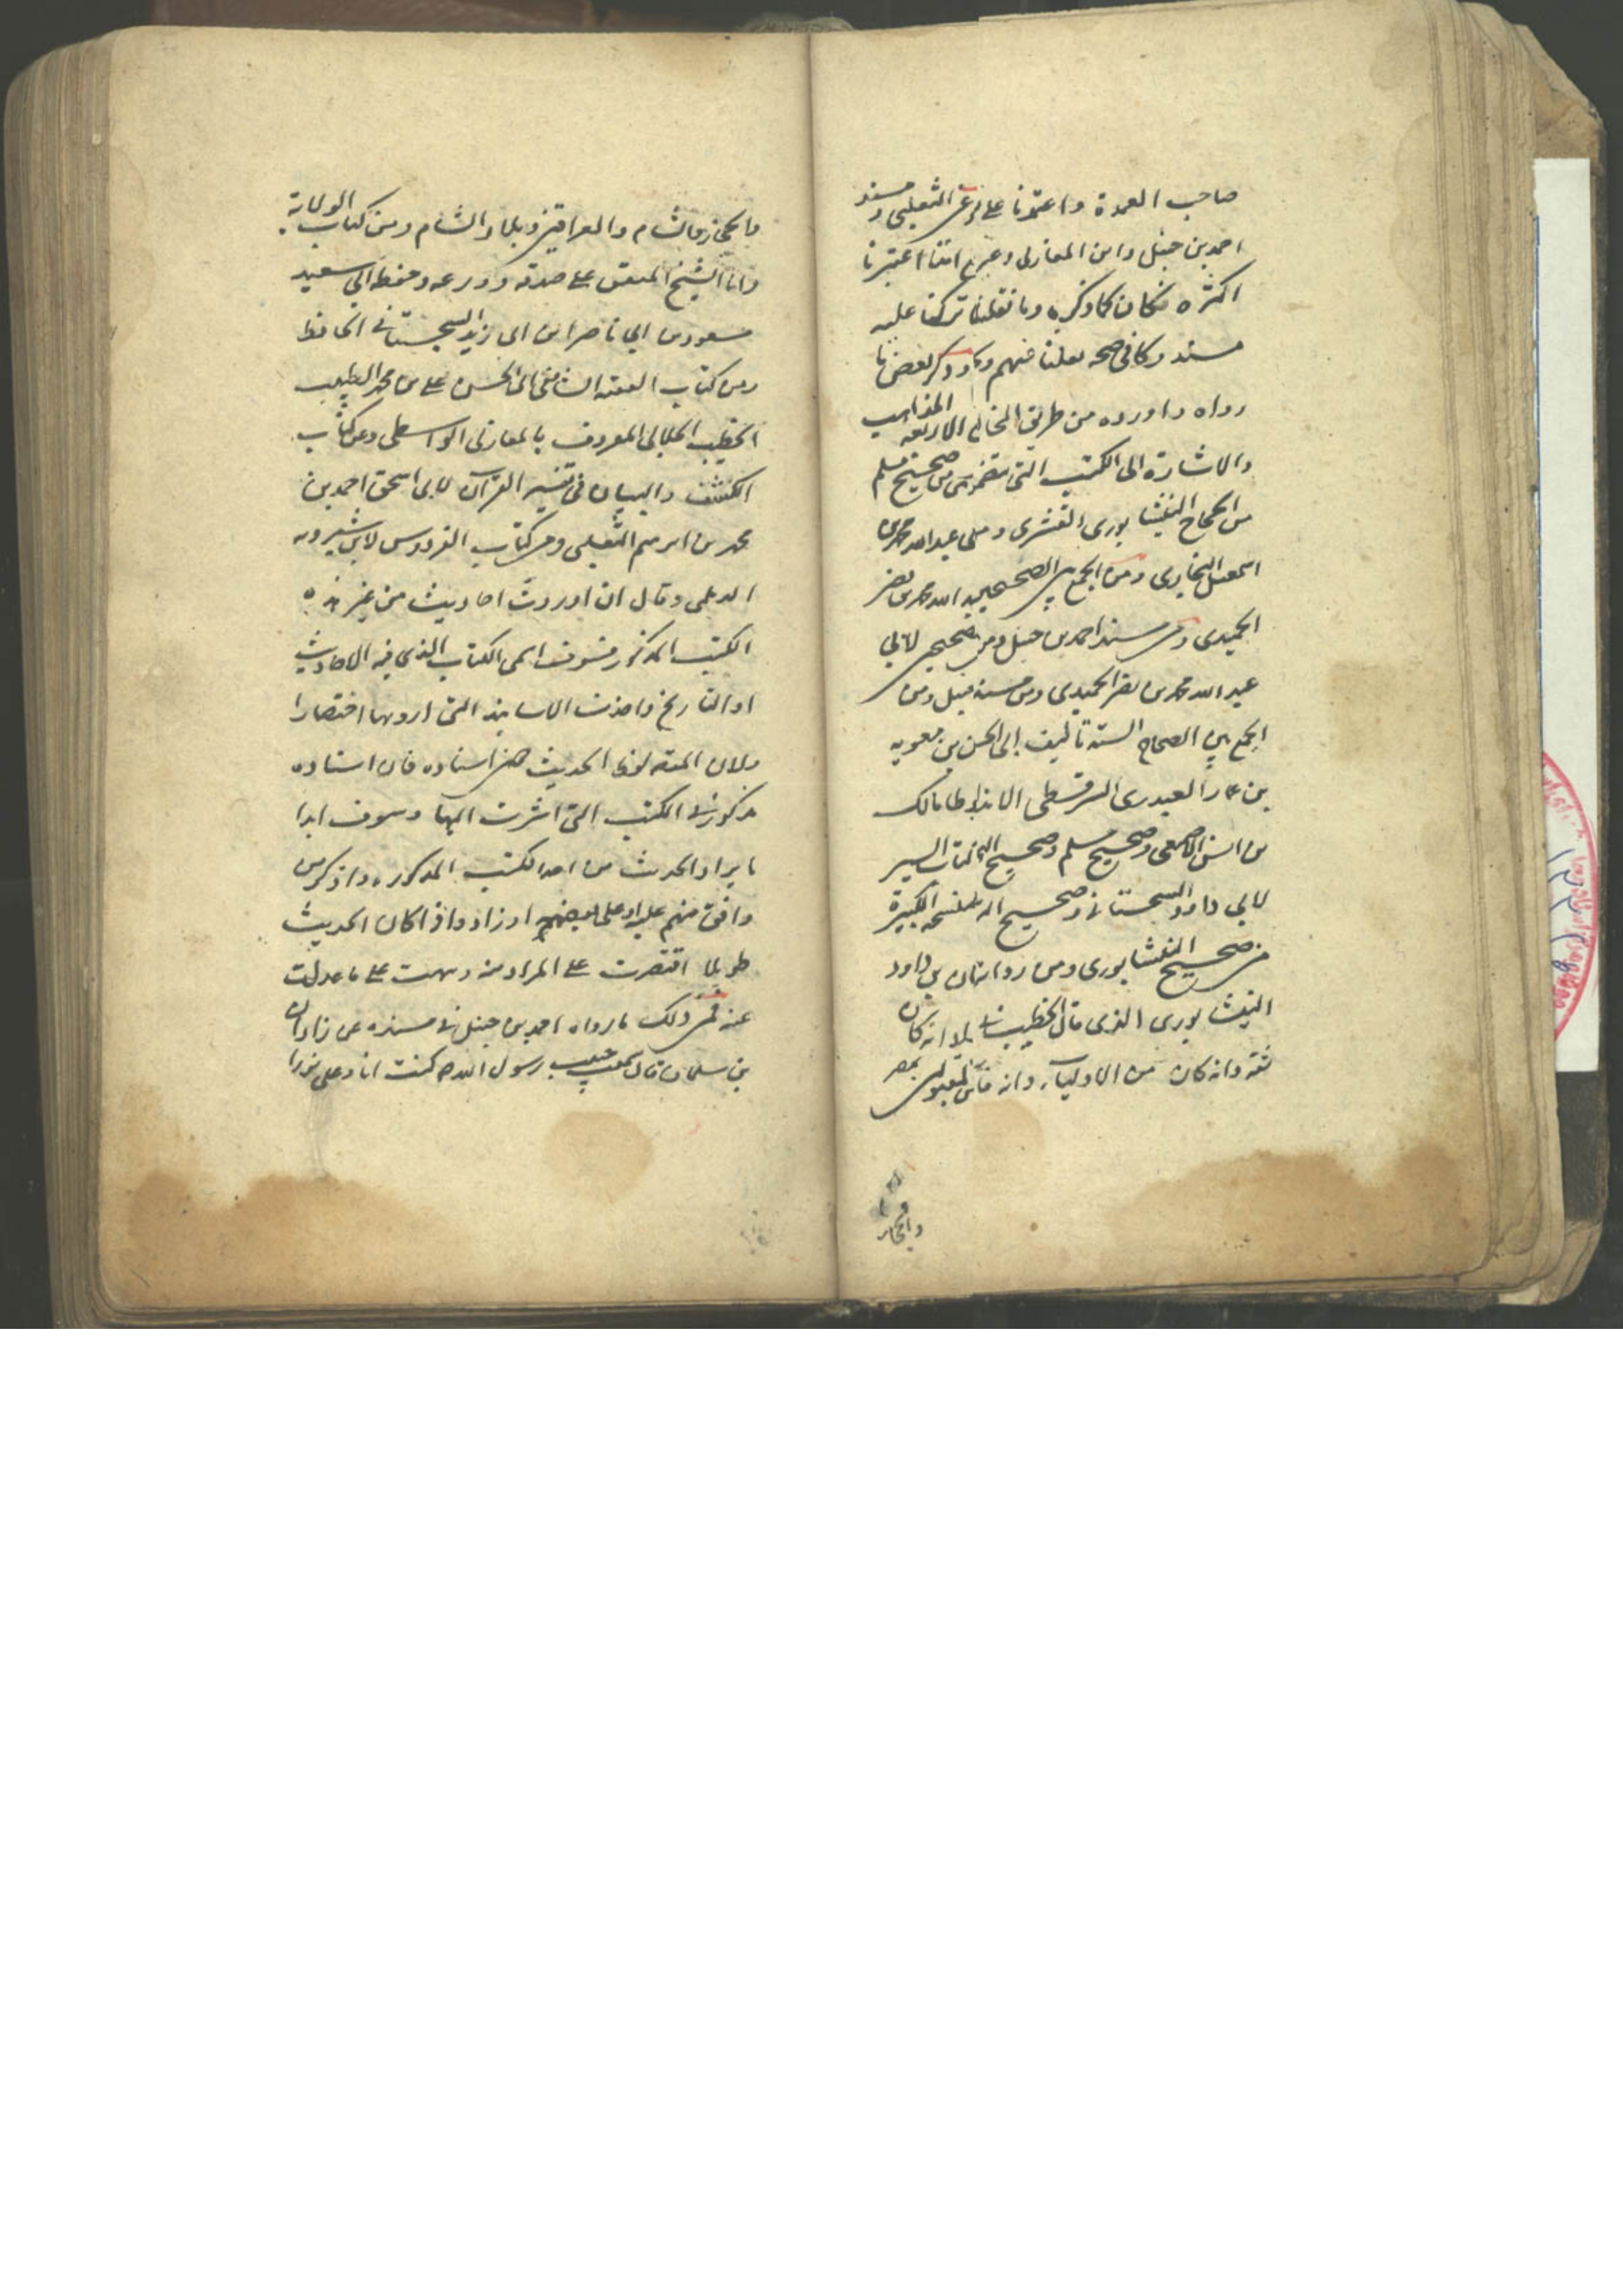 صاحب العمدة واعتمدنا على الثعلبي ومسند
احمد بن حنبل وابن المغازلى وغيرهم اننا اعتبرنا
اكثره فكان كما ذكره وما نقلناه تركنا عليه
مسند وكافى صحه نقلنا منهم وقد ذكر بعض ما
رواه واورده من طريق المخالف المذاهب الاربعة
والاشارة الى الكتب التى من صحيح مسلم
بن الحجاج النيشابورى القشرى و عبد الله محمد بن
اسمعيل البخارى ومن الجمع بين الصحيحين لعبد الله محمد بن نصر
الحميدى ومن مسند احمد بن حنبل ومن لابي
عبد الله محمد بن نصر الحميدى ومن مسند حنبل ومن
الجمع بين الصحاح الستة تأليف ابى الحسن بن معويه
بن عمار العبدرى السرقسطى الاندلسى مالك
بن انس الاصبحى وصحيح مسلم وصحيح السير
لابي داود السجستانى وصحيح الكبيرة
من صحيح النيشابورى ومن رواية بن داود
النيشابورى الذى قال الخطيب انه كان
ثقة وانه كان من الاولياء وانه بمصر
والحجاز
والحجاز والشام والعراقين وبلاد الشام ومن كتاب الولاية
واما الشيخ المتفق على صدقه وورعه وحفظه ابي سعيد
مسعود بن ابي ناصر ابن ابى زيد السجستانى الحافظ
ومن كتاب الفقيه الشافعى ابى الحسن على بن محمد الطيب
الخطيب الجلابى المعروف بالمغازلى الواسطى ومن كتاب
الكشف والبيان فى تفسير القرآن لابى اسحق احمد بن
محمد بن ابرهيم الثعلبى ومن كتاب الفردوس لابن شيرويه
الديلمى وقال ان اوردت احاديث من غير هذه
الكتب المذكورة فسوف اسمى الكتاب الذى فيه الاحاديث
او التاريخ واحذف الاسانيد التى ارويها اختصارا
ولان المقصد لفظ الحديث اسناده فان اسناده
مذكور فى الكتب التى اشرت اليها وسوف ابدا
بايراد الحديث من احد الكتب المذكورة واذكر من
وافق منهم عليه او على بعضهم او زاد واذا كان الحديث
طويلا اقتصرت على المراد منه ونبهت على ما عدلت
عنه فمن ذلك ما رواه احمد بن حنبل فى مسنده عن زاذان
بن سلمان قال سمعت حبيب رسول الله ص كنت انا وعلى نورا